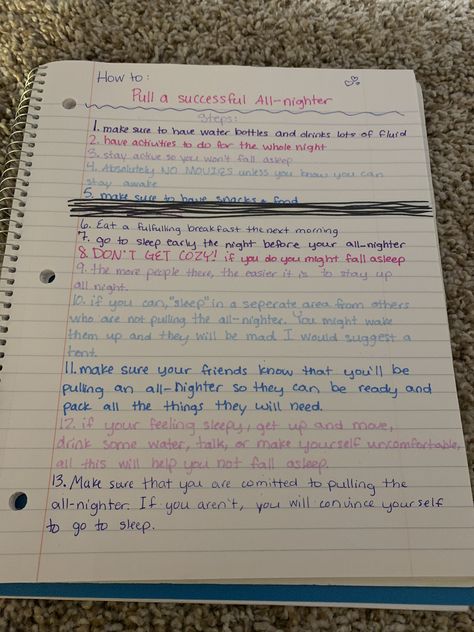 How to:
Pull a successful All-nighter
Steps:
1. make sure to have water bottles and drinks lots of fluid
2. have activities to do for the whole night
3. stay active so you won't fall asleep
4. Absolutely NO MOVIES unless you know you can
stay awake
5. make sure to have snacks + food
6. Eat a fulfulling breakfast the next morning
7. go to sleep early the night before your all-nighter
8. DON'T GET COZY! if you do you might fall asleep
9. the more people there, the easier it is to stay up
all night.
10. if you can, "sleep" in a seperate area from others
who are not pulling the all-nighter. You might wake
them up and they will be mad. I would suggest a
tent.
11. make sure your friends know that you'll be
pulling an all-nighter so they can be ready and
pack all the things they will need.
12. if your feeling sleepy, get up and move,
drink some water, talk, or make yourself uncomfortable,
all this will help you not fall asleep.
13. Make sure that you are comitted to pulling the
all-nighter. If you aren't, you will convince yourself
to go to sleep.